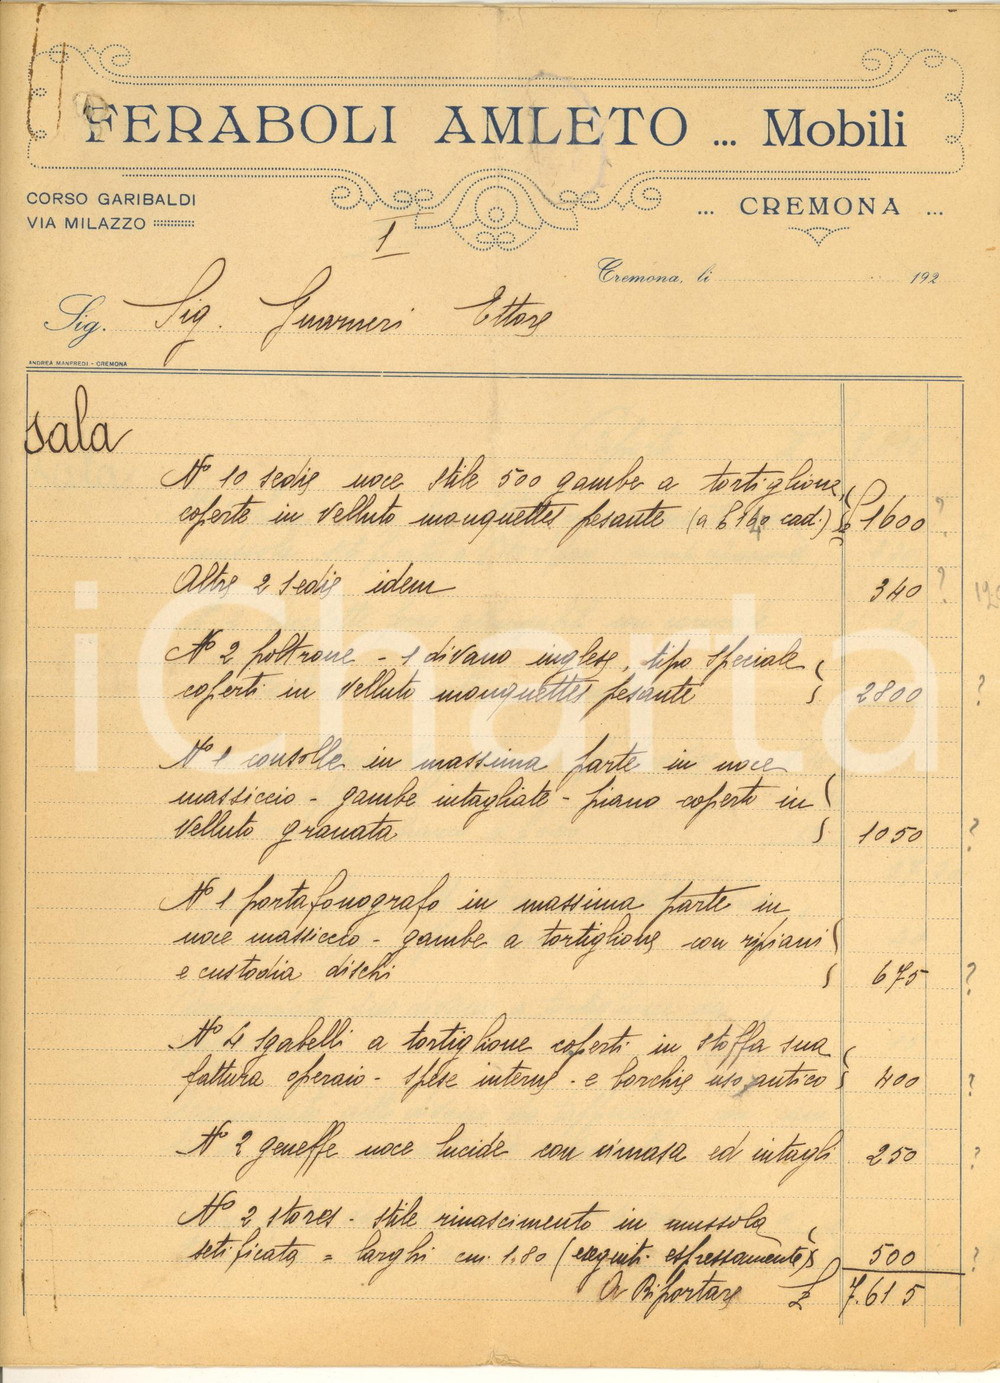 FERABOLI AMLETO ... Mobili
CORSO GARIBALDI
VIA MILAZZO
... CREMONA ...
1
Cremona, li 192
Sig. Sig. Guarneri Ettore
ANDREA MANFREDI - CREMONA
Sala
N° 10 sedie noce stile 500 gambe a tortiglione
coperte in velluto mouquettes pesante (a £ 160 cad.) £ 1600 ?
Altre 2 sedie idem 340 ?
N° 2 poltrone - 1 divano inglese, tipo speciale
coperti in velluto mouquettes pesante 2800 ?
N° 1 consolle in massima parte in noce
massiccio - gambe intagliate - piano coperto in
velluto granata 1050 ?
N° 1 portafonografo in massima parte in
noce massiccio - gambe a tortiglione con ripiani
e custodia dischi 675 ?
N° 4 sgabelli a tortiglione coperti in stoffa sua
fattura operaio - spese interne - e borchie uso antico 400 ?
N° 2 geneffe noce lucide con cimasa ed intagli 250 ?
N° 2 stores - stile rinascimento in mussola
setificata = larghi cm. 1.80 (eseguiti espressamente) 500 ?
A Riportare £ 7.615
iCharta